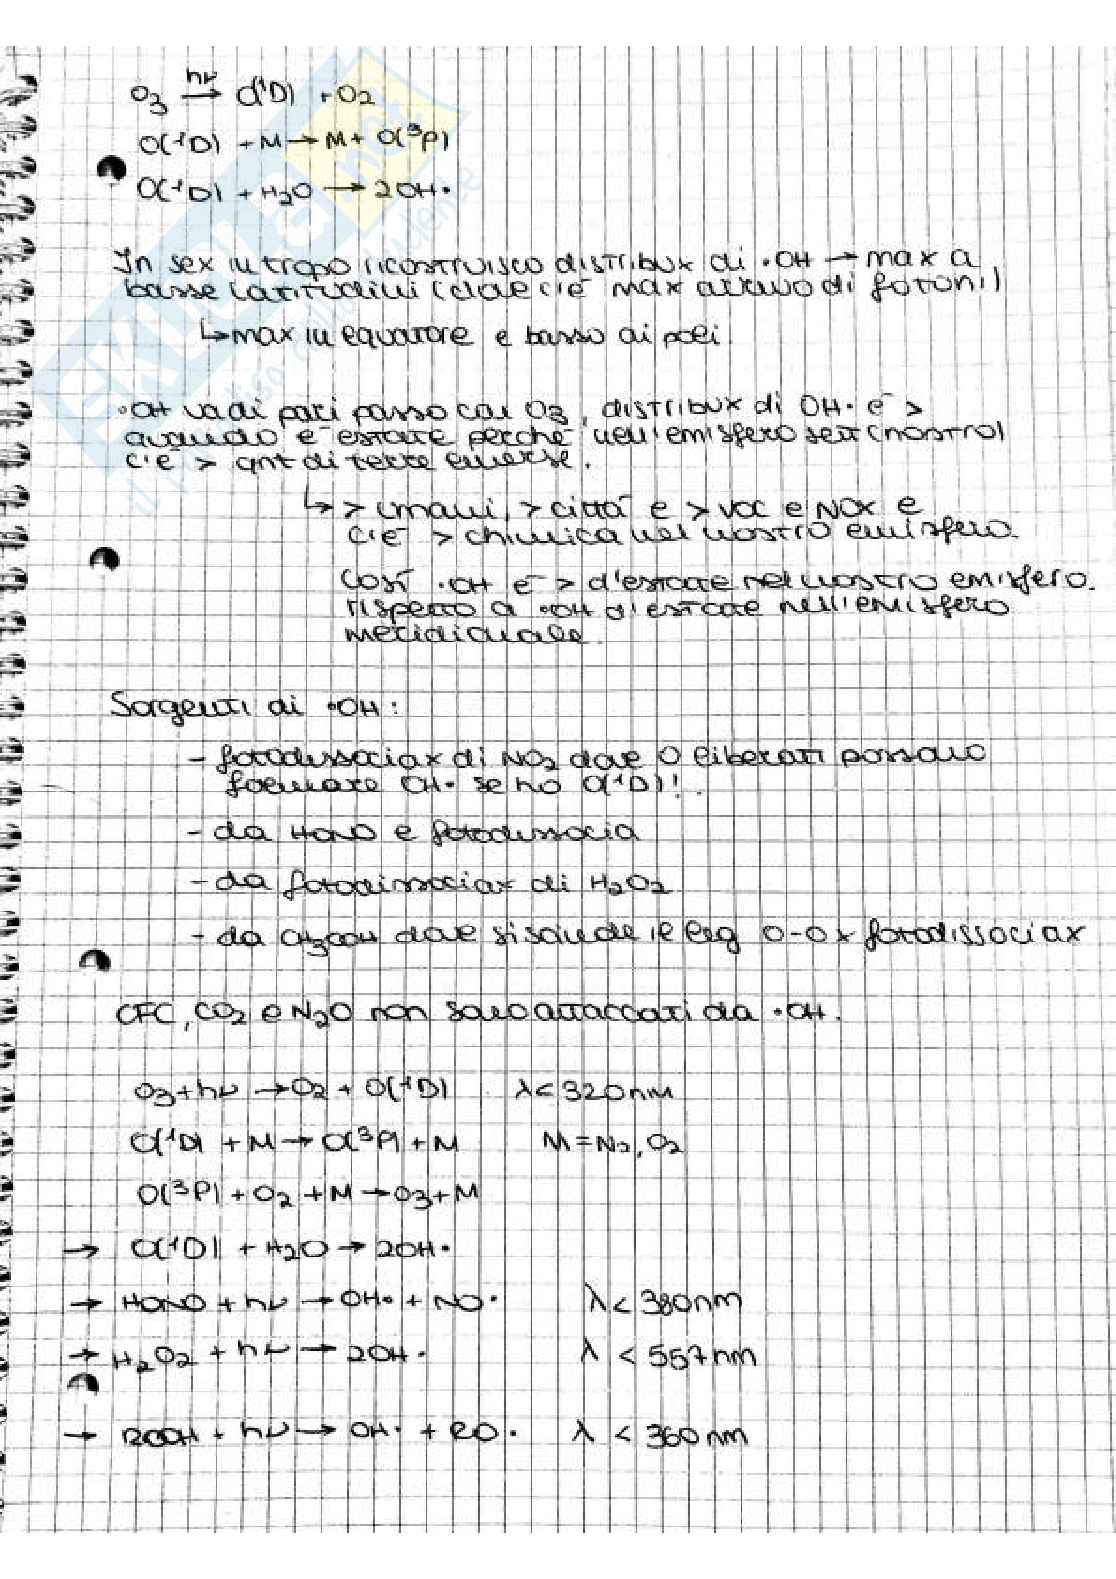 O₃ →(hν) O(¹D) + O₂
O(¹D) + M → M + O(³P)
O(¹D) + H₂O → 2OH·
In sex in tropo ricostruisco distribux di ·OH → max a
basse latitudini (dove c'è max arrivo di fotoni)
↳ max in equatore e basso ai poli
·OH va di pari passo con O₃, distribux di OH· è >
quando è estate perché nell'emisfero sett (nostro)
c'è > qnt di terre emerse.
↳ > umani, > città e > VOC e NOx e
c'è > chimica nel nostro emisfero.
Così ·OH è > d'estate nel nostro emisfero
rispetto a ·OH d'estate nell'emisfero
meridionale.
Sorgenti di ·OH:
- fotodissociax di NO₂ dove O liberati possono
formare OH· se ho O(¹D)!
- da HONO e fotodissocia
- da fotodissociax di H₂O₂
- da CH₃OOH dove si scinde il leg O-O x fotodissociax
CFC, CO₂ e N₂O non sono attaccati da ·OH.
O₃ + hν → O₂ + O(¹D) λ < 320 nm
O(¹D) + M → O(³P) + M M = N₂, O₂
O(³P) + O₂ + M → O₃ + M
→ O(¹D) + H₂O → 2OH·
→ HONO + hν → OH· + NO· λ < 380 nm
→ H₂O₂ + hν → 2OH· λ < 557 nm
→ ROOH + hν → OH· + RO· λ < 360 nm